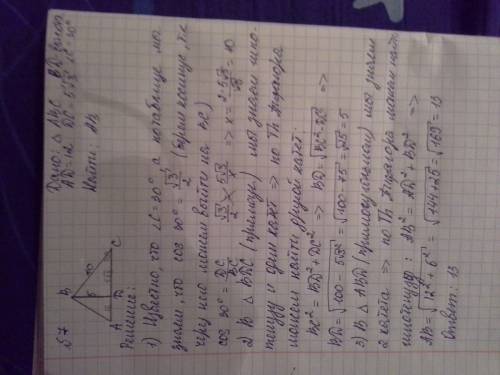 №7
Дано: △ABC BD-высота
AD=12 DC=5√3 ∠C=30°
Найти: AB
B
10
5
12
A D C
Решение:
1) Известно, что ∠C=30°, а по таблице мы
знаем, что cos 30° = √3/2 (прям косинус, т.к.
через него можем выйти на BC)
cos 30° = DC/BC √3/2 = 5√3/x => x = 2·5√3/√3 = 10
2) В △ BDC (прямоуг.) мы знаем гипо-
тенузу и один катет => по Th Пифагора
можем найти другой катет:
BC² = BD² + DC² => BD = √BC²-DC² =>
BD = √100 - 5√3² = √100-75 = √25 = 5
3) В △ ABD (прямоугольном) мы знаем
2 катета => по Th Пифагора можем найти
гипотенузу: AB² = AD² + BD² =>
AB = √12² + 5² = √144+25 = √169 = 13
Ответ: 13